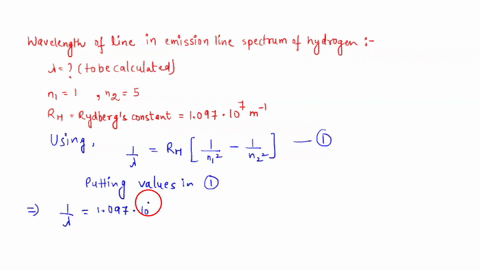 Wavelength of line in emission line spectrum of hydrogen :-
λ = ? (to be calculated)
n₁ = 1 , n₂ = 5
R_H = Rydberg's constant = 1.097 · 10⁷ m⁻¹
Using, 1/λ = R_H [ 1/n₁² - 1/n₂² ] — ①
Putting values in ①
⇒ 1/λ = 1.097 · 10